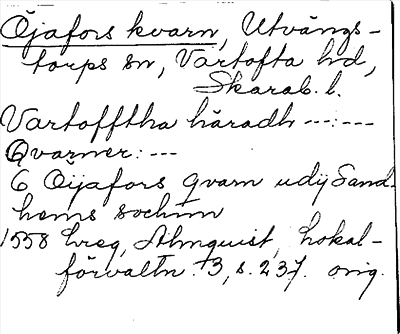 Öjafors kvarn, Utvängs-
torps sn, Vartofta hd,
Skarab. l.
Vartofftha häradh ---:---
Qvarner: ---
6 Öijafors qvarn udij Sand-
hems sochnn
1558 hreg, Almquist, Lokal-
förvaltn. 3, s. 237. orig.